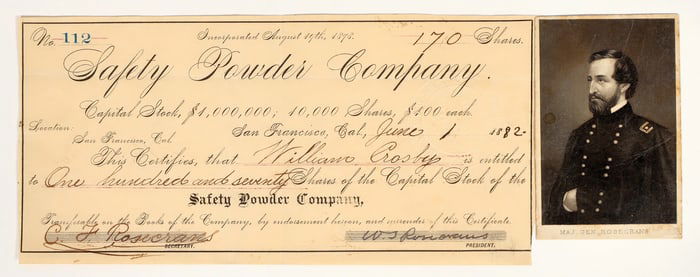 No. 112 Incorporated August 19th, 1875. 170 Shares.
Safety Powder Company.
Capital Stock, $1,000,000; 10,000 Shares, $100 each.
Location:
San Francisco, Cal. San Francisco, Cal., June 1 1882-
This Certifies, that William Crosby is entitled
to One hundred and seventy Shares of the Capital Stock of the
Safety Powder Company,
Transferable on the Books of the Company, by endorsement hereon, and surrender of this Certificate.
C. F. Rosecrans W S Rosecrans
SECRETARY. PRESIDENT.
MAJ. GEN. ROSECRANS